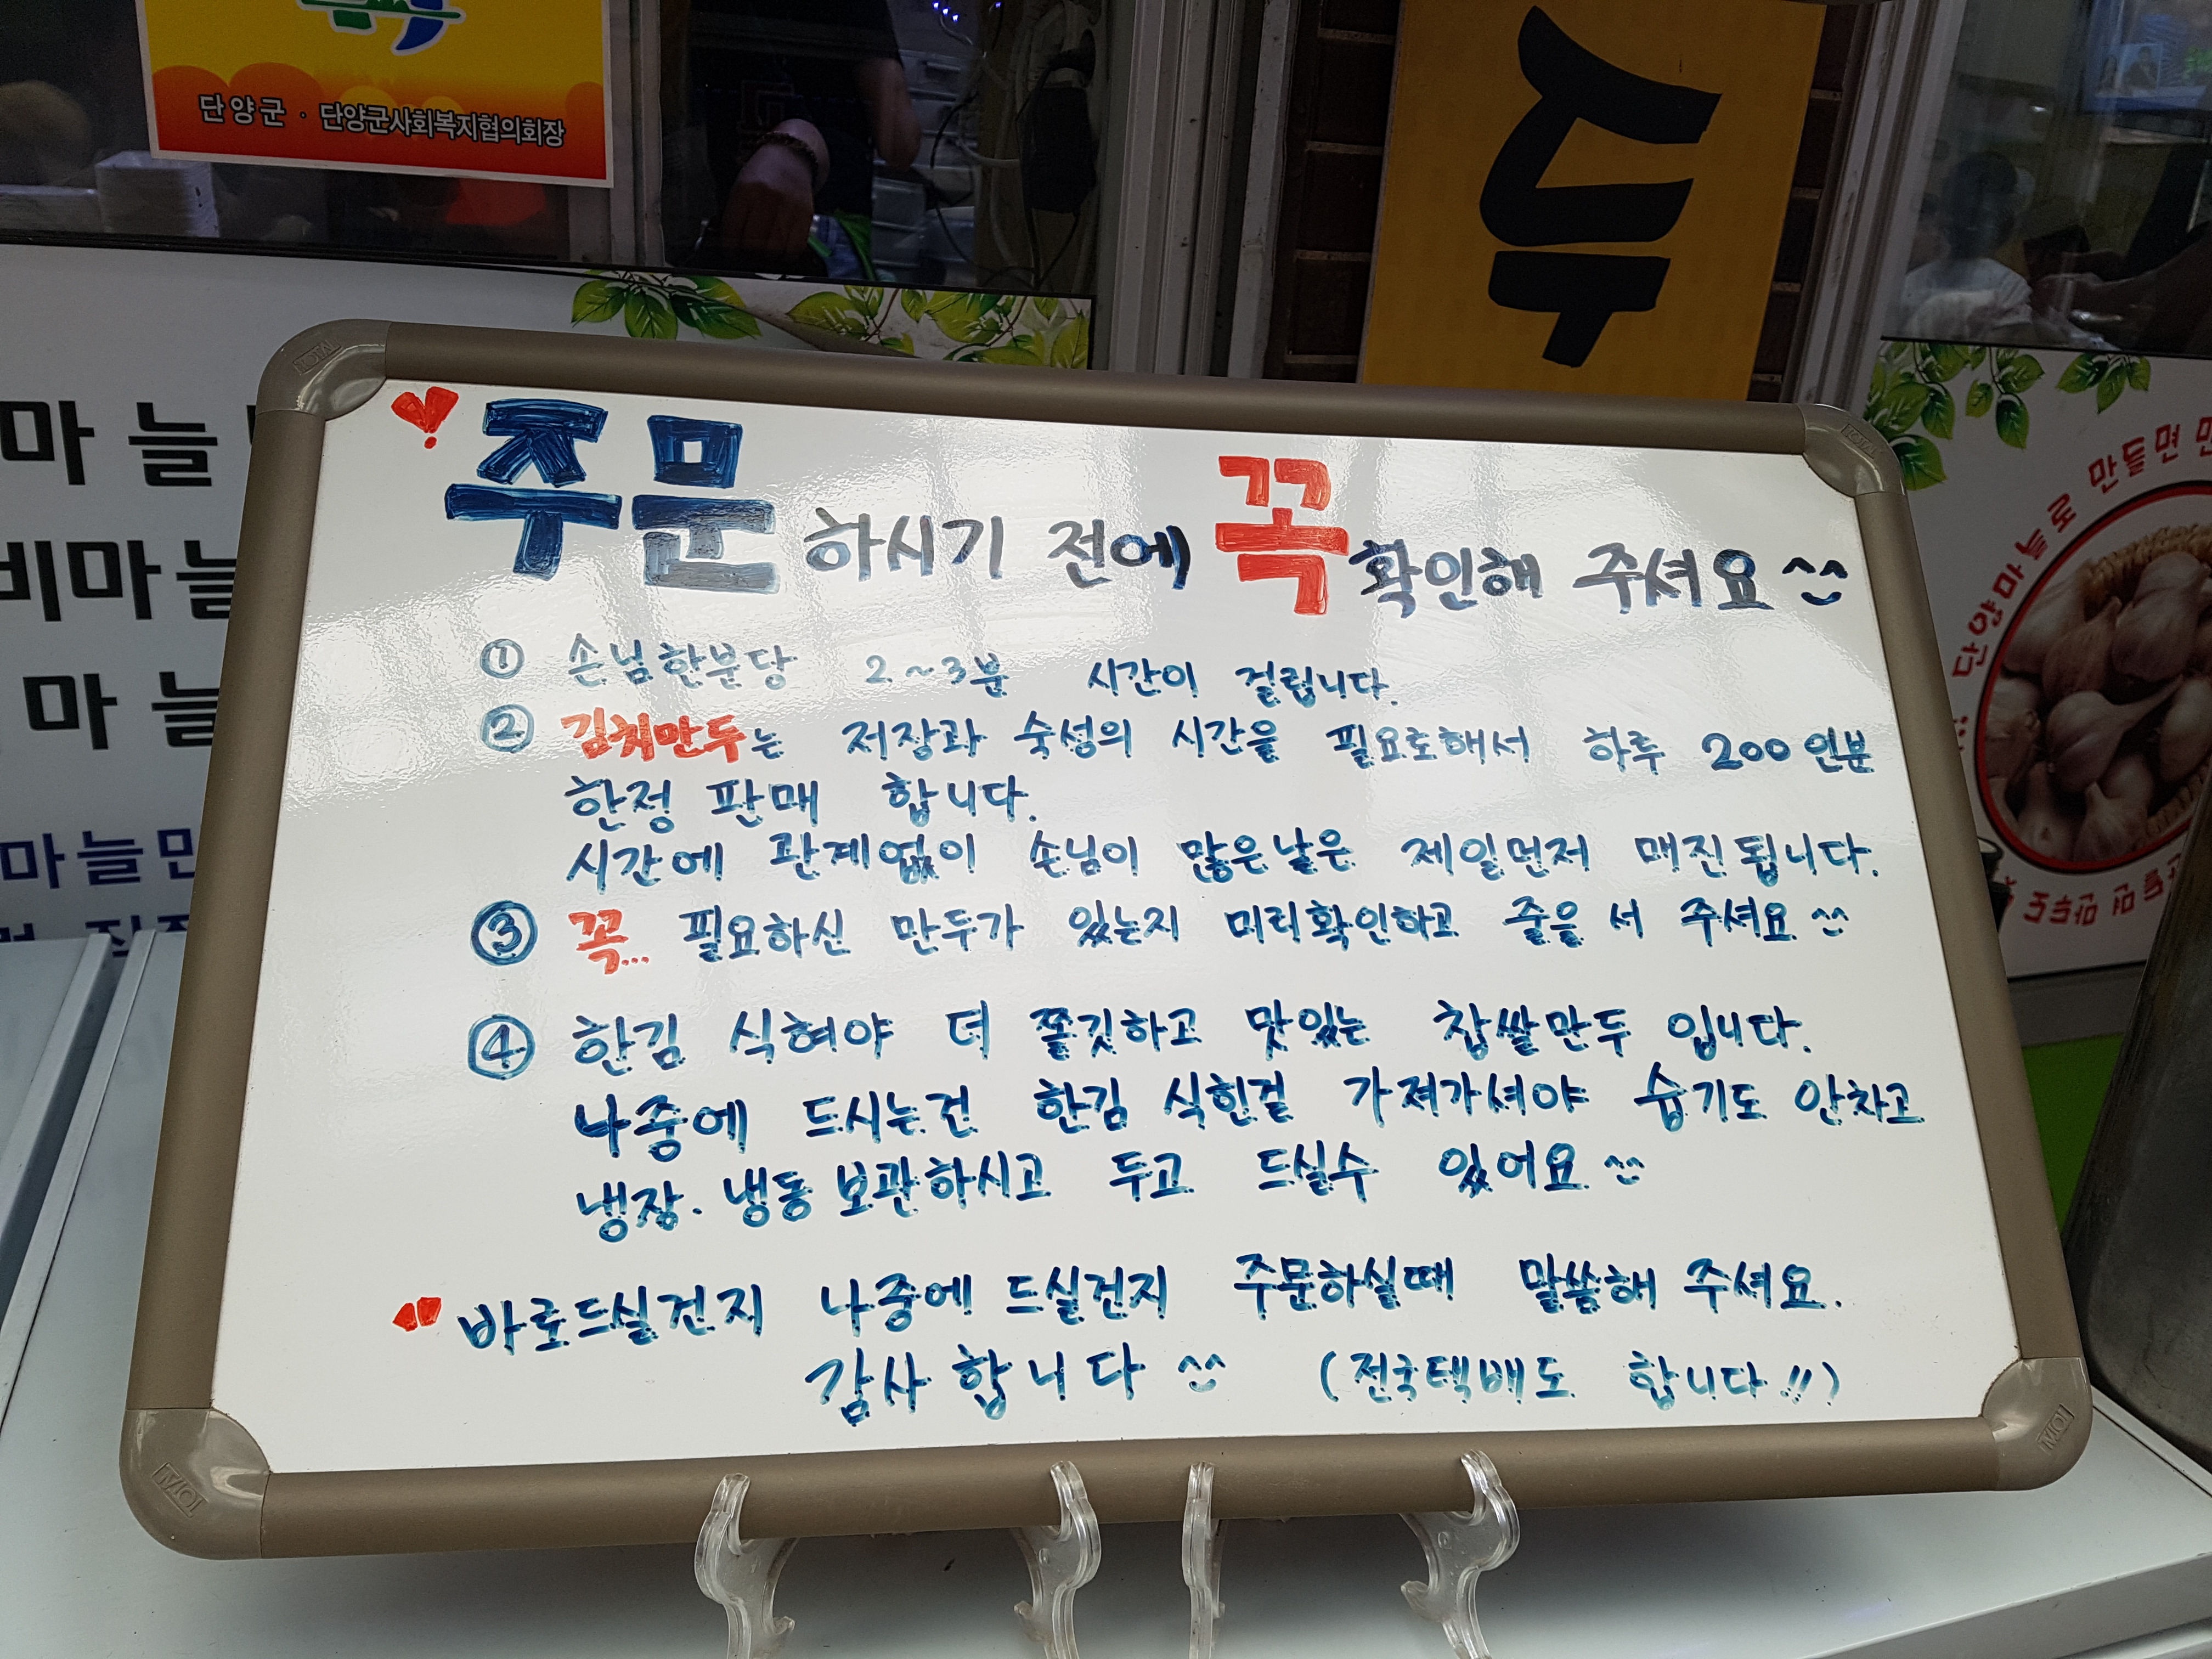 단양군 · 단양군사회복지협의회장
두
마늘
비마늘
마늘
마늘만
주문하시기 전에 꼭 확인해 주셔요 ^^
① 손님한분당 2~3분 시간이 걸립니다.
② 김치만두는 저장과 숙성의 시간을 필요로해서 하루 200인분
한정 판매 합니다.
시간에 관계없이 손님이 많은날은 제일먼저 매진됩니다.
③ 꼭... 필요하신 만두가 있는지 미리확인하고 줄을 서 주셔요 ^^
④ 한김 식혀야 더 쫄깃하고 맛있는 찹쌀만두 입니다.
나중에 드시는건 한김 식힌걸 가져가셔야 습기도 안차고
냉장. 냉동 보관하시고 두고 드실수 있어요 ^^
바로드실건지 나중에 드실건지 주문하실때 말씀해 주셔요.
감사합니다 ^^ (전국택배도 합니다!!)
단양마늘로 만들면